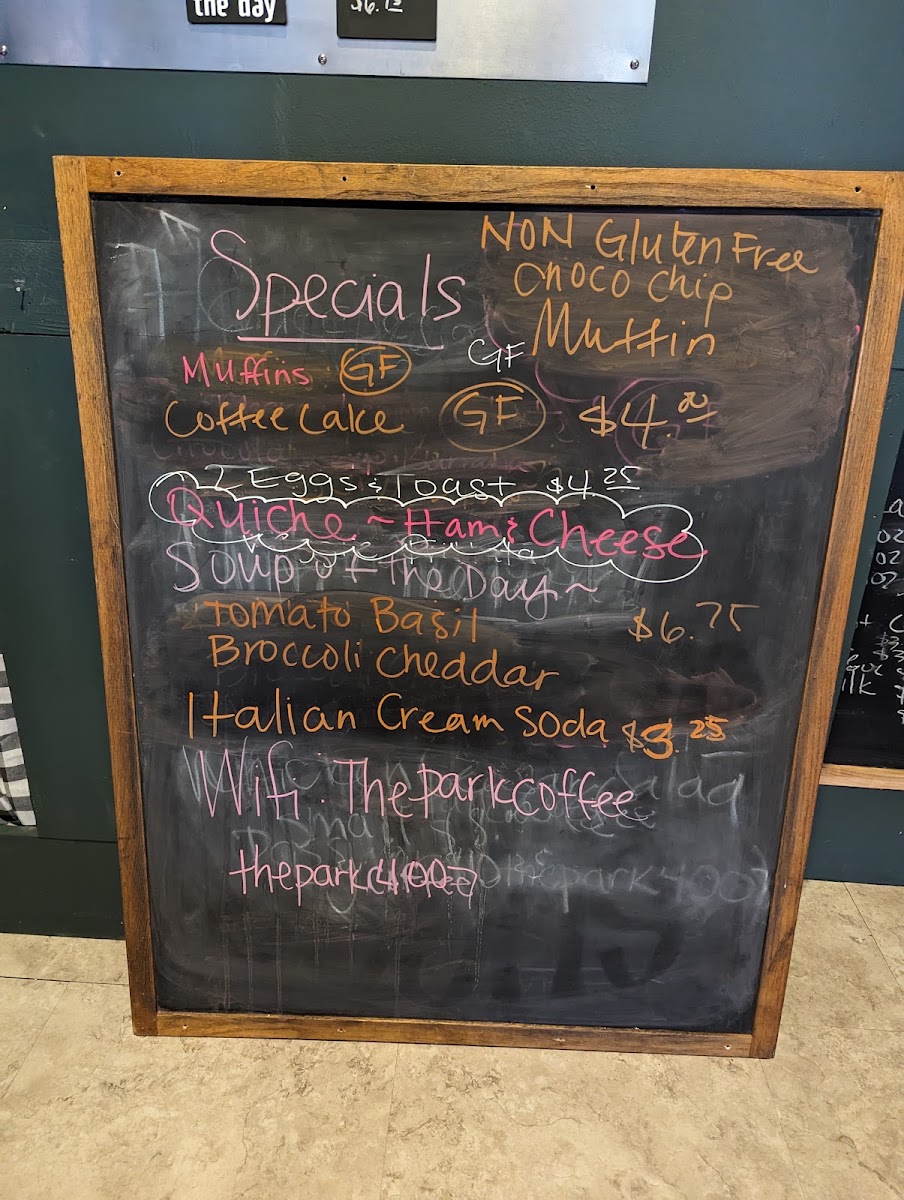 the day
$6.75
Specials
NON Gluten Free
Choco Chip
Muffin
GF
Muffins GF
Coffee Cake GF $4.00
2 Eggs & Toast $4.25
Quiche ~ Ham & Cheese
Soup of the Day ~
Tomato Basil $6.75
Broccoli Cheddar
Italian Cream Soda $3.25
Wifi: Theparkcoffee